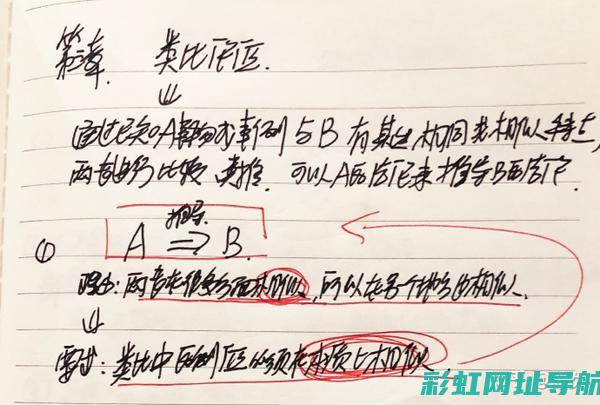 第三章 类比论证
通过已知A事物或事例与B有某些相同或相似特点,
两者进行比较 类推 可以A的结论来推导B的结论.
推导
① A ⇒ B.
理由:两者在很多方面相似,可以在另个地方也相似.
要求:类比中的例证必须在本质上相似
彩虹网址导航